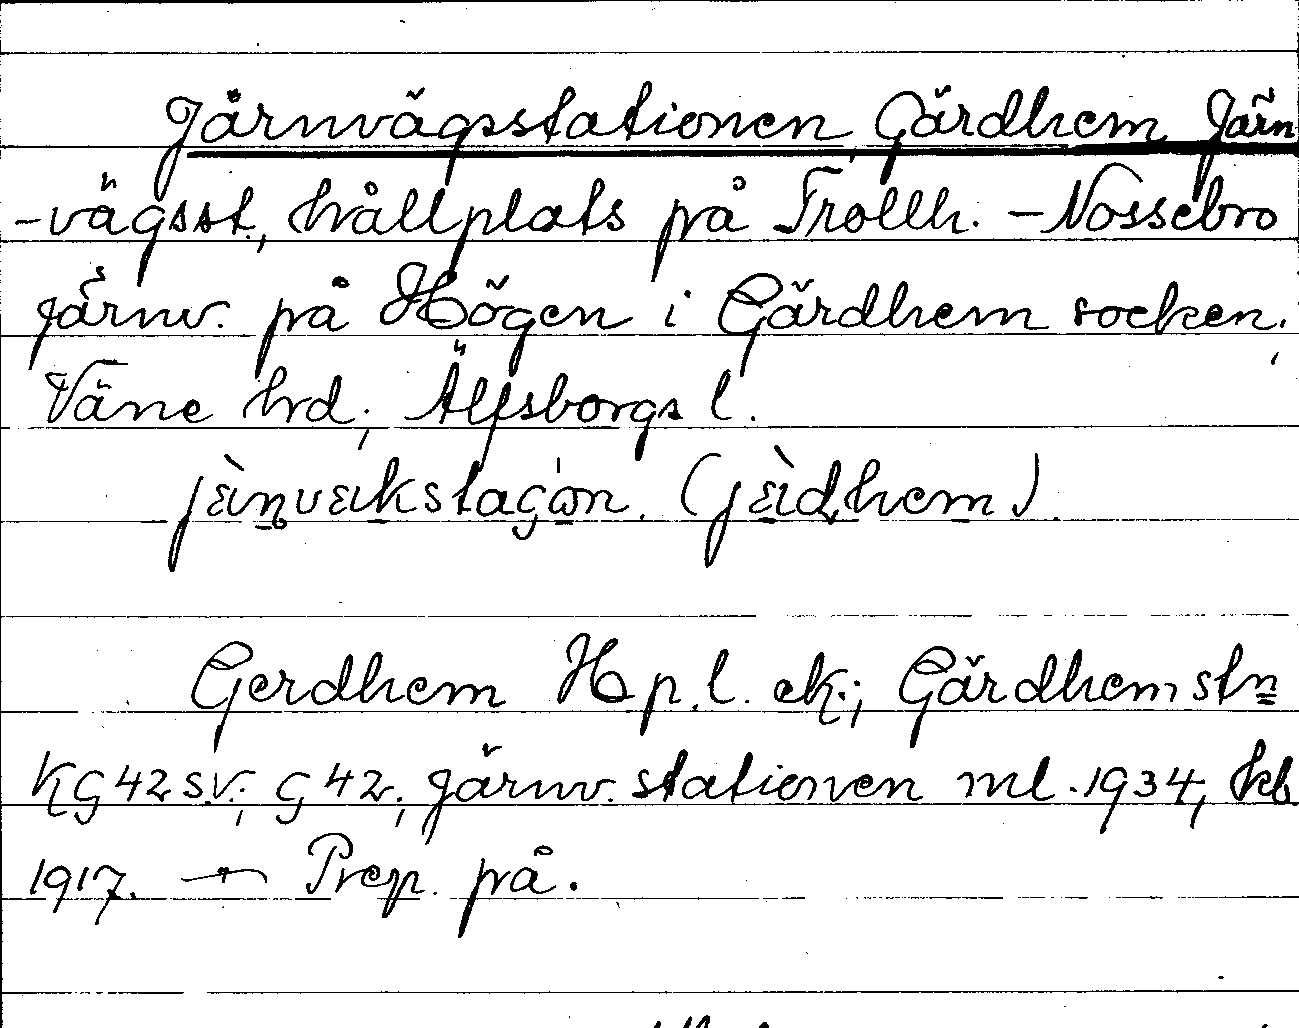 Järnvägsstationen Gärdhem Järn
-vägsst., hållplats på Trollh. - Nossebro
järnv. på Högen i Gärdhem socken,
Väne hrd, Älfsborgs l.
(jɛ̀ɩdhem).
Gerdhem Hp.l. ek.; Gärdhem stn
KG42 SV; G 42; järnv. stationen ml. 1934, kb
1917. — Prep. på.